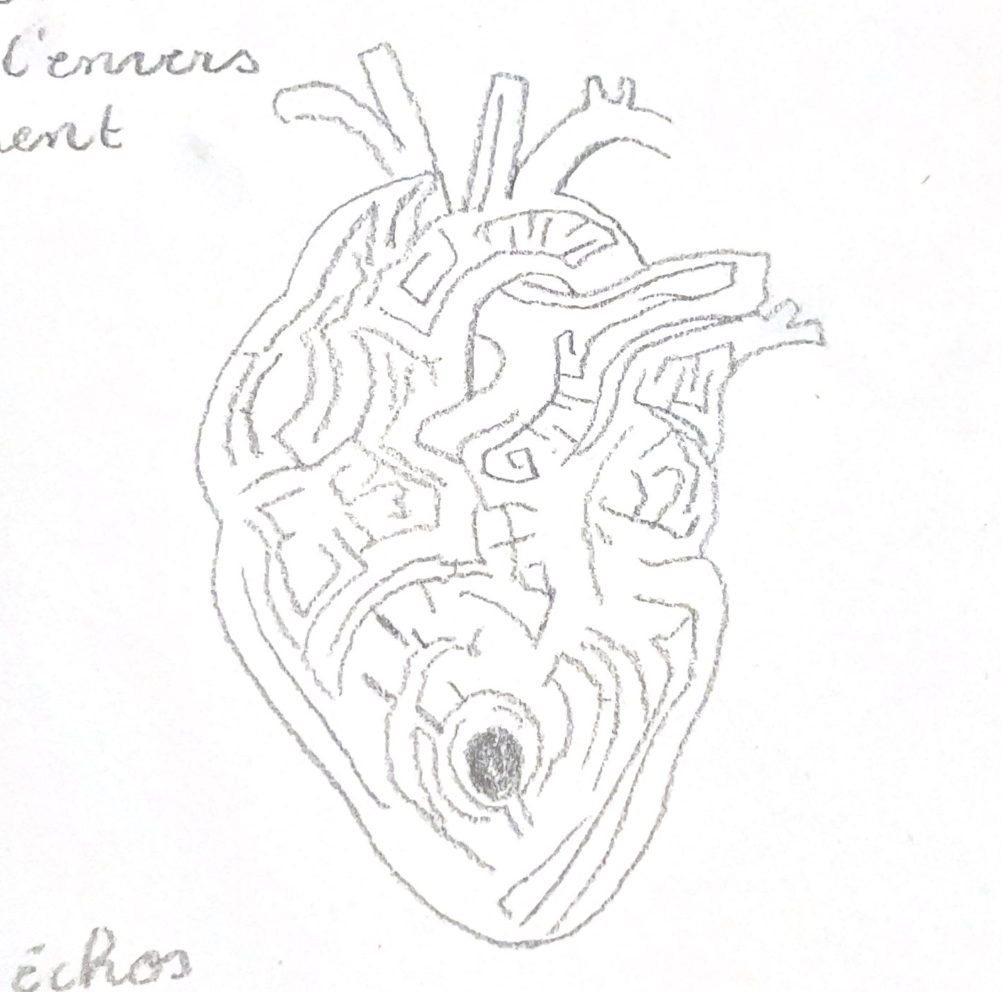 l'envers
ent
échos